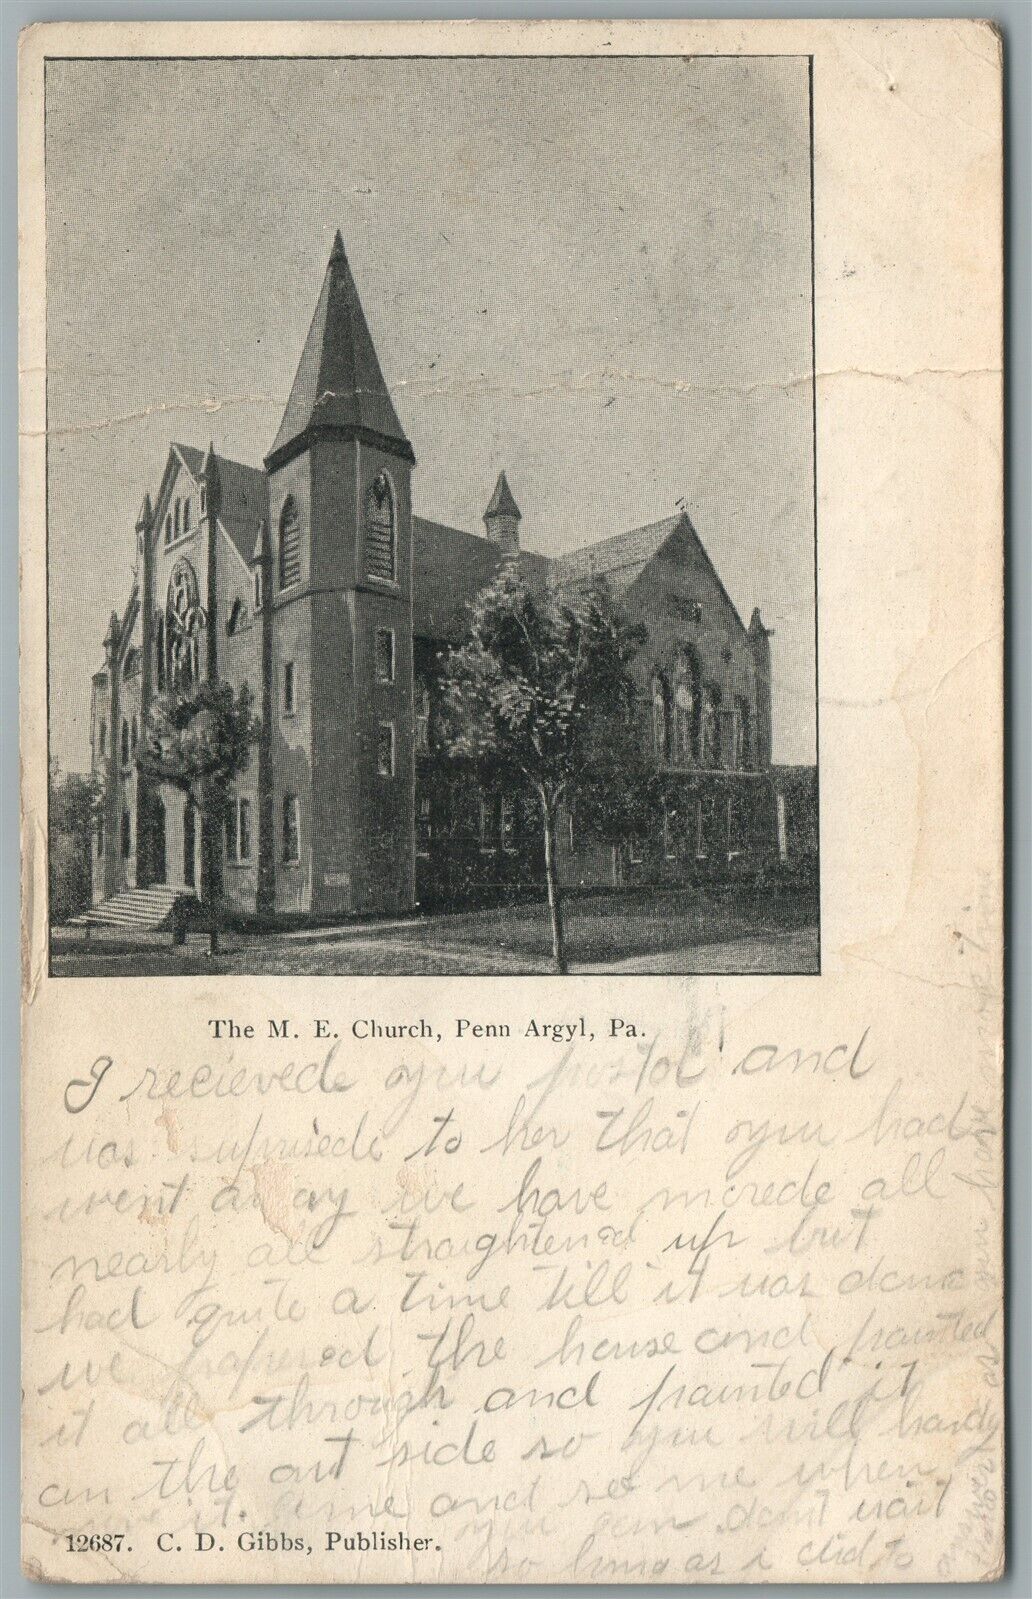 The M. E. Church, Penn Argyl, Pa.
I recievede you postol and
was suprisede to her that you had
went away we have morede all
nearly all straightened up but
had quite a time till it was done
we papered the house and painted
it all through and painted it
on the out side so you will hardly
it. Come and see me when
you can dont wait
so long as i did to
12687. C. D. Gibbs, Publisher.
as you have